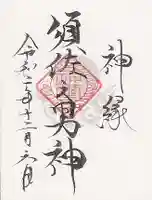 神縁
須佐之男神
令和二年十二月六日